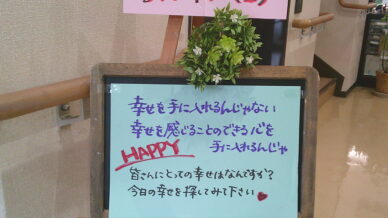 幸せを手に入れるんじゃない
幸せを感じることのできる心を
手に入れるんじゃ
HAPPY
皆さんにとっての幸せはなんですか?
今日の幸せを探してみて下さい♥